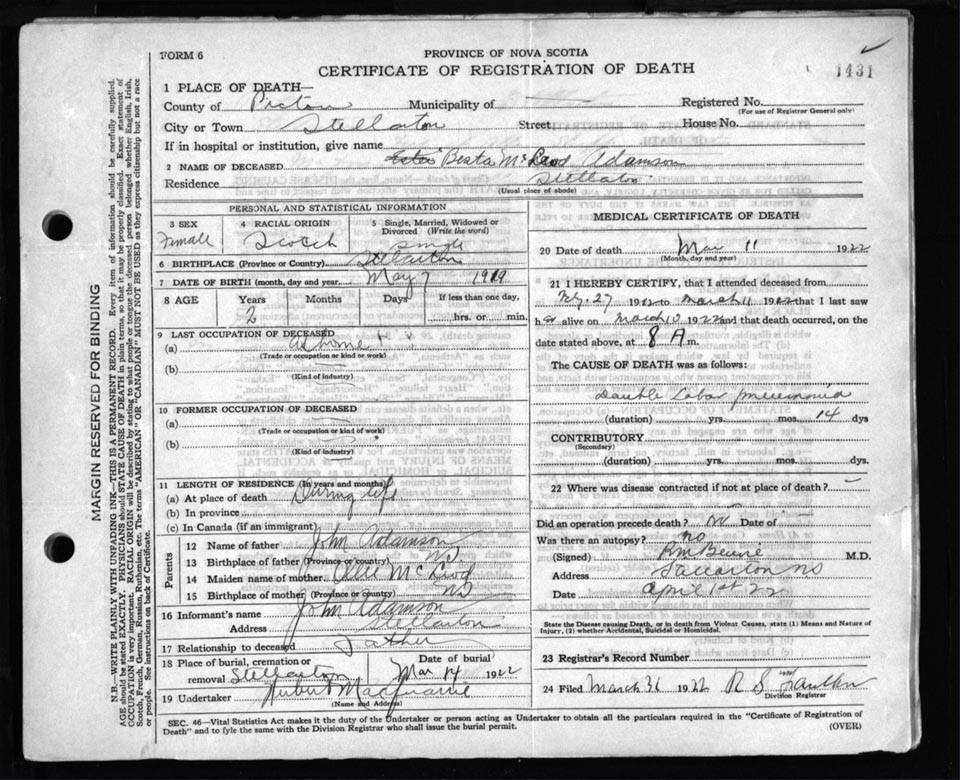 FORM 6
PROVINCE OF NOVA SCOTIA
CERTIFICATE OF REGISTRATION OF DEATH
1431
1 PLACE OF DEATH—
County of Pictou Municipality of Registered No.
(For use of Registrar General only)
City or Town Stellarton Street House No.
If in hospital or institution, give name
2 NAME OF DECEASED Besta McLeod Adamson
Residence Stellarton
(Usual place of abode)
PERSONAL AND STATISTICAL INFORMATION
3 SEX 4 RACIAL ORIGIN 5 Single, Married, Widowed or Divorced (Write the word)
Female Scotch Single
6 BIRTHPLACE (Province or Country) Stellarton
7 DATE OF BIRTH (month, day and year) May 7 1919
8 AGE Years Months Days If less than one day,
2 hrs. or min.
9 LAST OCCUPATION OF DECEASED
(a) at home
(Trade or occupation or kind or work)
(b)
(Kind of industry)
10 FORMER OCCUPATION OF DECEASED
(a)
(Trade or occupation or kind of work)
(b)
(Kind of industry)
11 LENGTH OF RESIDENCE (In years and months)
(a) At place of death During life
(b) In province
(c) In Canada (if an immigrant)
Parents
12 Name of father John Adamson
13 Birthplace of father (Province or country) NS
14 Maiden name of mother McLeod
15 Birthplace of mother (Province or country) NS
16 Informant's name John Adamson
Address Stellarton
17 Relationship to deceased Father
18 Place of burial, cremation or removal Stellarton Date of burial Mar 14 1922
19 Undertaker
(Name and Address)
MEDICAL CERTIFICATE OF DEATH
20 Date of death Mar 11 1922
(Month, day and year)
21 I HEREBY CERTIFY, that I attended deceased from
27 1922 to March 11 1922 that I last saw
h alive on March 10 1922 and that death occurred, on
date stated above, at 8 A m.
The CAUSE OF DEATH was as follows:
Double Lobar pneumonia
(duration) yrs. mos. 14 dys
CONTRIBUTORY
(Secondary)
(duration) yrs. mos. dys.
22 Where was disease contracted if not at place of death?
Did an operation precede death? no Date of
Was there an autopsy? no
(Signed) M.D.
Address Stellarton NS
Date April 1st 22
State the Disease causing Death, or in death from Violent Causes, state (1) Means and Nature of Injury, (2) whether Accidental, Suicidal or Homicidal.
23 Registrar's Record Number
24 Filed March 31 1922 R S
Division Registrar
SEC. 46—Vital Statistics Act makes it the duty of the Undertaker or person acting as Undertaker to obtain all the particulars required in the "Certificate of Registration of
Death" and to fyle the same with the Division Registrar who shall issue the burial permit.
(OVER)
MARGIN RESERVED FOR BINDING
N.B.—WRITE PLAINLY WITH UNFADING INK—THIS IS A PERMANENT RECORD. Every item of information should be carefully supplied.
AGE should be stated EXACTLY. PHYSICIANS should STATE CAUSE OF DEATH in plain terms, so that it may be properly classified. Exact statement of
OCCUPATION is very important. RACIAL ORIGIN will be described by stating to what people or tongue the deceased person belonged whether English, Irish,
Scotch, French, German, Russian, Ruthenian, etc. The terms "AMERICAN" or "CANADIAN" MUST NOT BE USED as they express citizenship but not a race
or people. See instructions on back of Certificate.